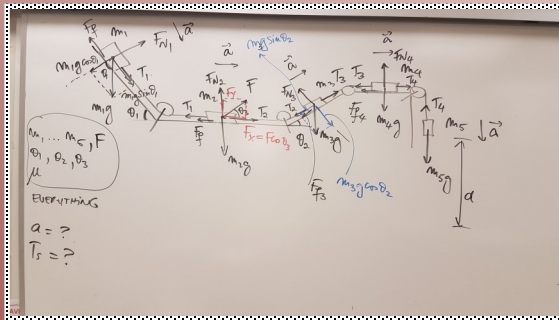 Ff m₁ FN₁ ↓a⃗
m₁g cosθ₁ θ₁ T₁ m₁g sinθ₁
m₁g θ₁
a⃗ FN₂ m₂ F Fy θ₃
T₁ Ff T₂ Fx = Fcosθ₃
m₂g
m₃g sinθ₂ a⃗ FN₃ T₃ T₃
T₂ θ₂ m₃g
Ff₃ m₃g cosθ₂
a⃗ FN₄ m₄ T₄
Ff₄ m₄g T₄ m₅ ↓a⃗
m₅g d
m₁ ... m₅, F
θ₁, θ₂, θ₃
μ
EVERYTHING
a = ?
Ts = ?